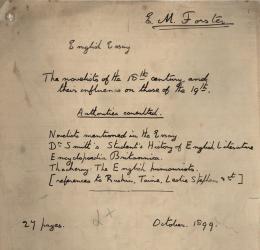 E. M. Forster
English Essay
The novelists of the 18th century, and
their influence on those of the 19th.
Authorities consulted.
Novelists mentioned in the Essay
Dr Smith's Student's History of English Literature
Encyclopædia Britannica.
Thackeray: The English humourists.
[references to Ruskin, Taine, Leslie Stephen &ct]
27 pages.
October. 1899.